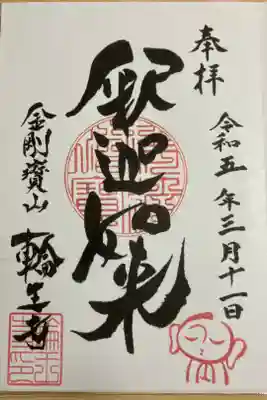 奉拝
令和五年三月十一日
釈迦如来
金剛寳山
輪王寺